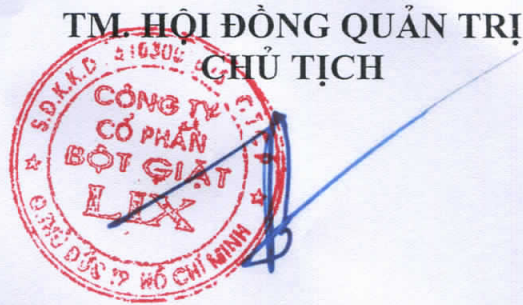 TM. HỘI ĐỒNG QUẢN TRỊ
CHỦ TỊCH
S.Đ.K.K.D
C.T.C.P
CÔNG TY
CỔ PHẦN
BỘT GIẶT
LIX
Q.THỦ ĐỨC TP HỒ CHÍ MINH